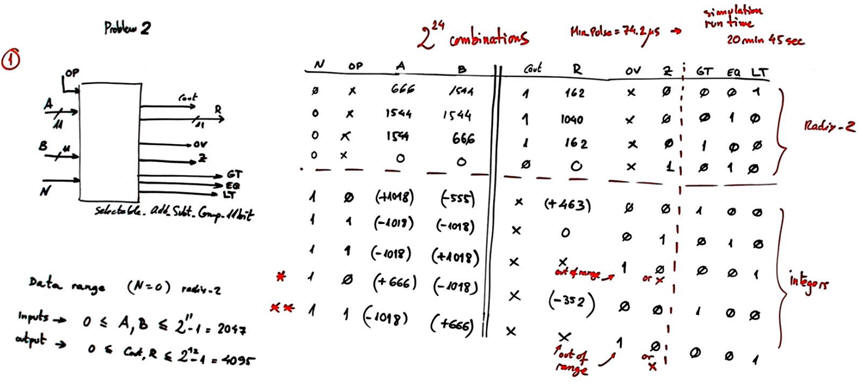 Problem 2
2^24 combinations
Min Pulse = 74.2 µs → simulation run time 20 min 45 sec
1
OP
A 11
B 11
N
Cout
R
11
OV
Z
GT
EQ
LT
Selectable_Add_Subt_Comp_11bit
N OP A B Cout R OV Z GT EQ LT
Ø x 666 1544 1 162 x Ø Ø Ø 1
0 x 1544 1544 1 1040 x Ø Ø 1 Ø
0 x 1544 666 1 162 x Ø 1 Ø Ø
0 x 0 0 Ø 0 x 1 Ø 1 Ø
Radix-2
1 Ø (+1018) (-555) x (+463) Ø Ø 1 Ø Ø
1 1 (-1018) (-1018) x 0 Ø 1 Ø 1 Ø
1 1 (-1018) (+1018) x x 1 Ø Ø Ø 1
out of range or x
* 1 Ø (+666) (-1018) x (-352) Ø Ø 1 Ø Ø
** 1 1 (-1018) (+666) x x 1 Ø Ø Ø 1
out of range or x
integers
Data range (N=0) radix-2
inputs → 0 ≤ A, B ≤ 2^11-1 = 2047
output → 0 ≤ Cout, R ≤ 2^12-1 = 4095